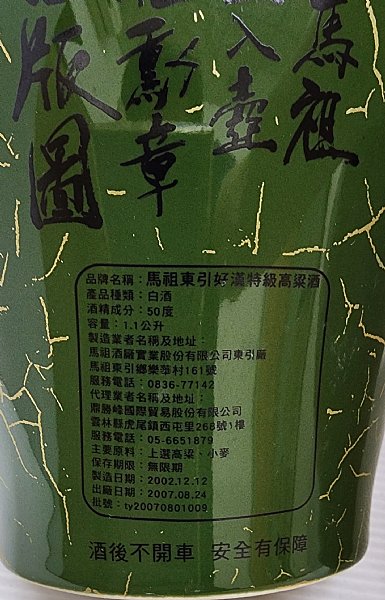 馬祖
入壺
勳章
版圖
品牌名稱：馬祖東引好漢特級高粱酒
產品種類：白酒
酒精成分：50度
容量：1.1公升
製造業者名稱及地址：
馬祖酒廠實業股份有限公司東引廠
馬祖東引鄉樂華村161號
服務電話：0836-77142
代理業者名稱及地址：
鼎勝峰國際貿易股份有限公司
雲林縣虎尾鎮西屯里268號1樓
服務電話：05-6651879
主要原料：上選高粱、小麥
保存期限：無限期
製造日期：2002.12.12
出廠日期：2007.08.24
批號：ty20070801009
酒後不開車 安全有保障